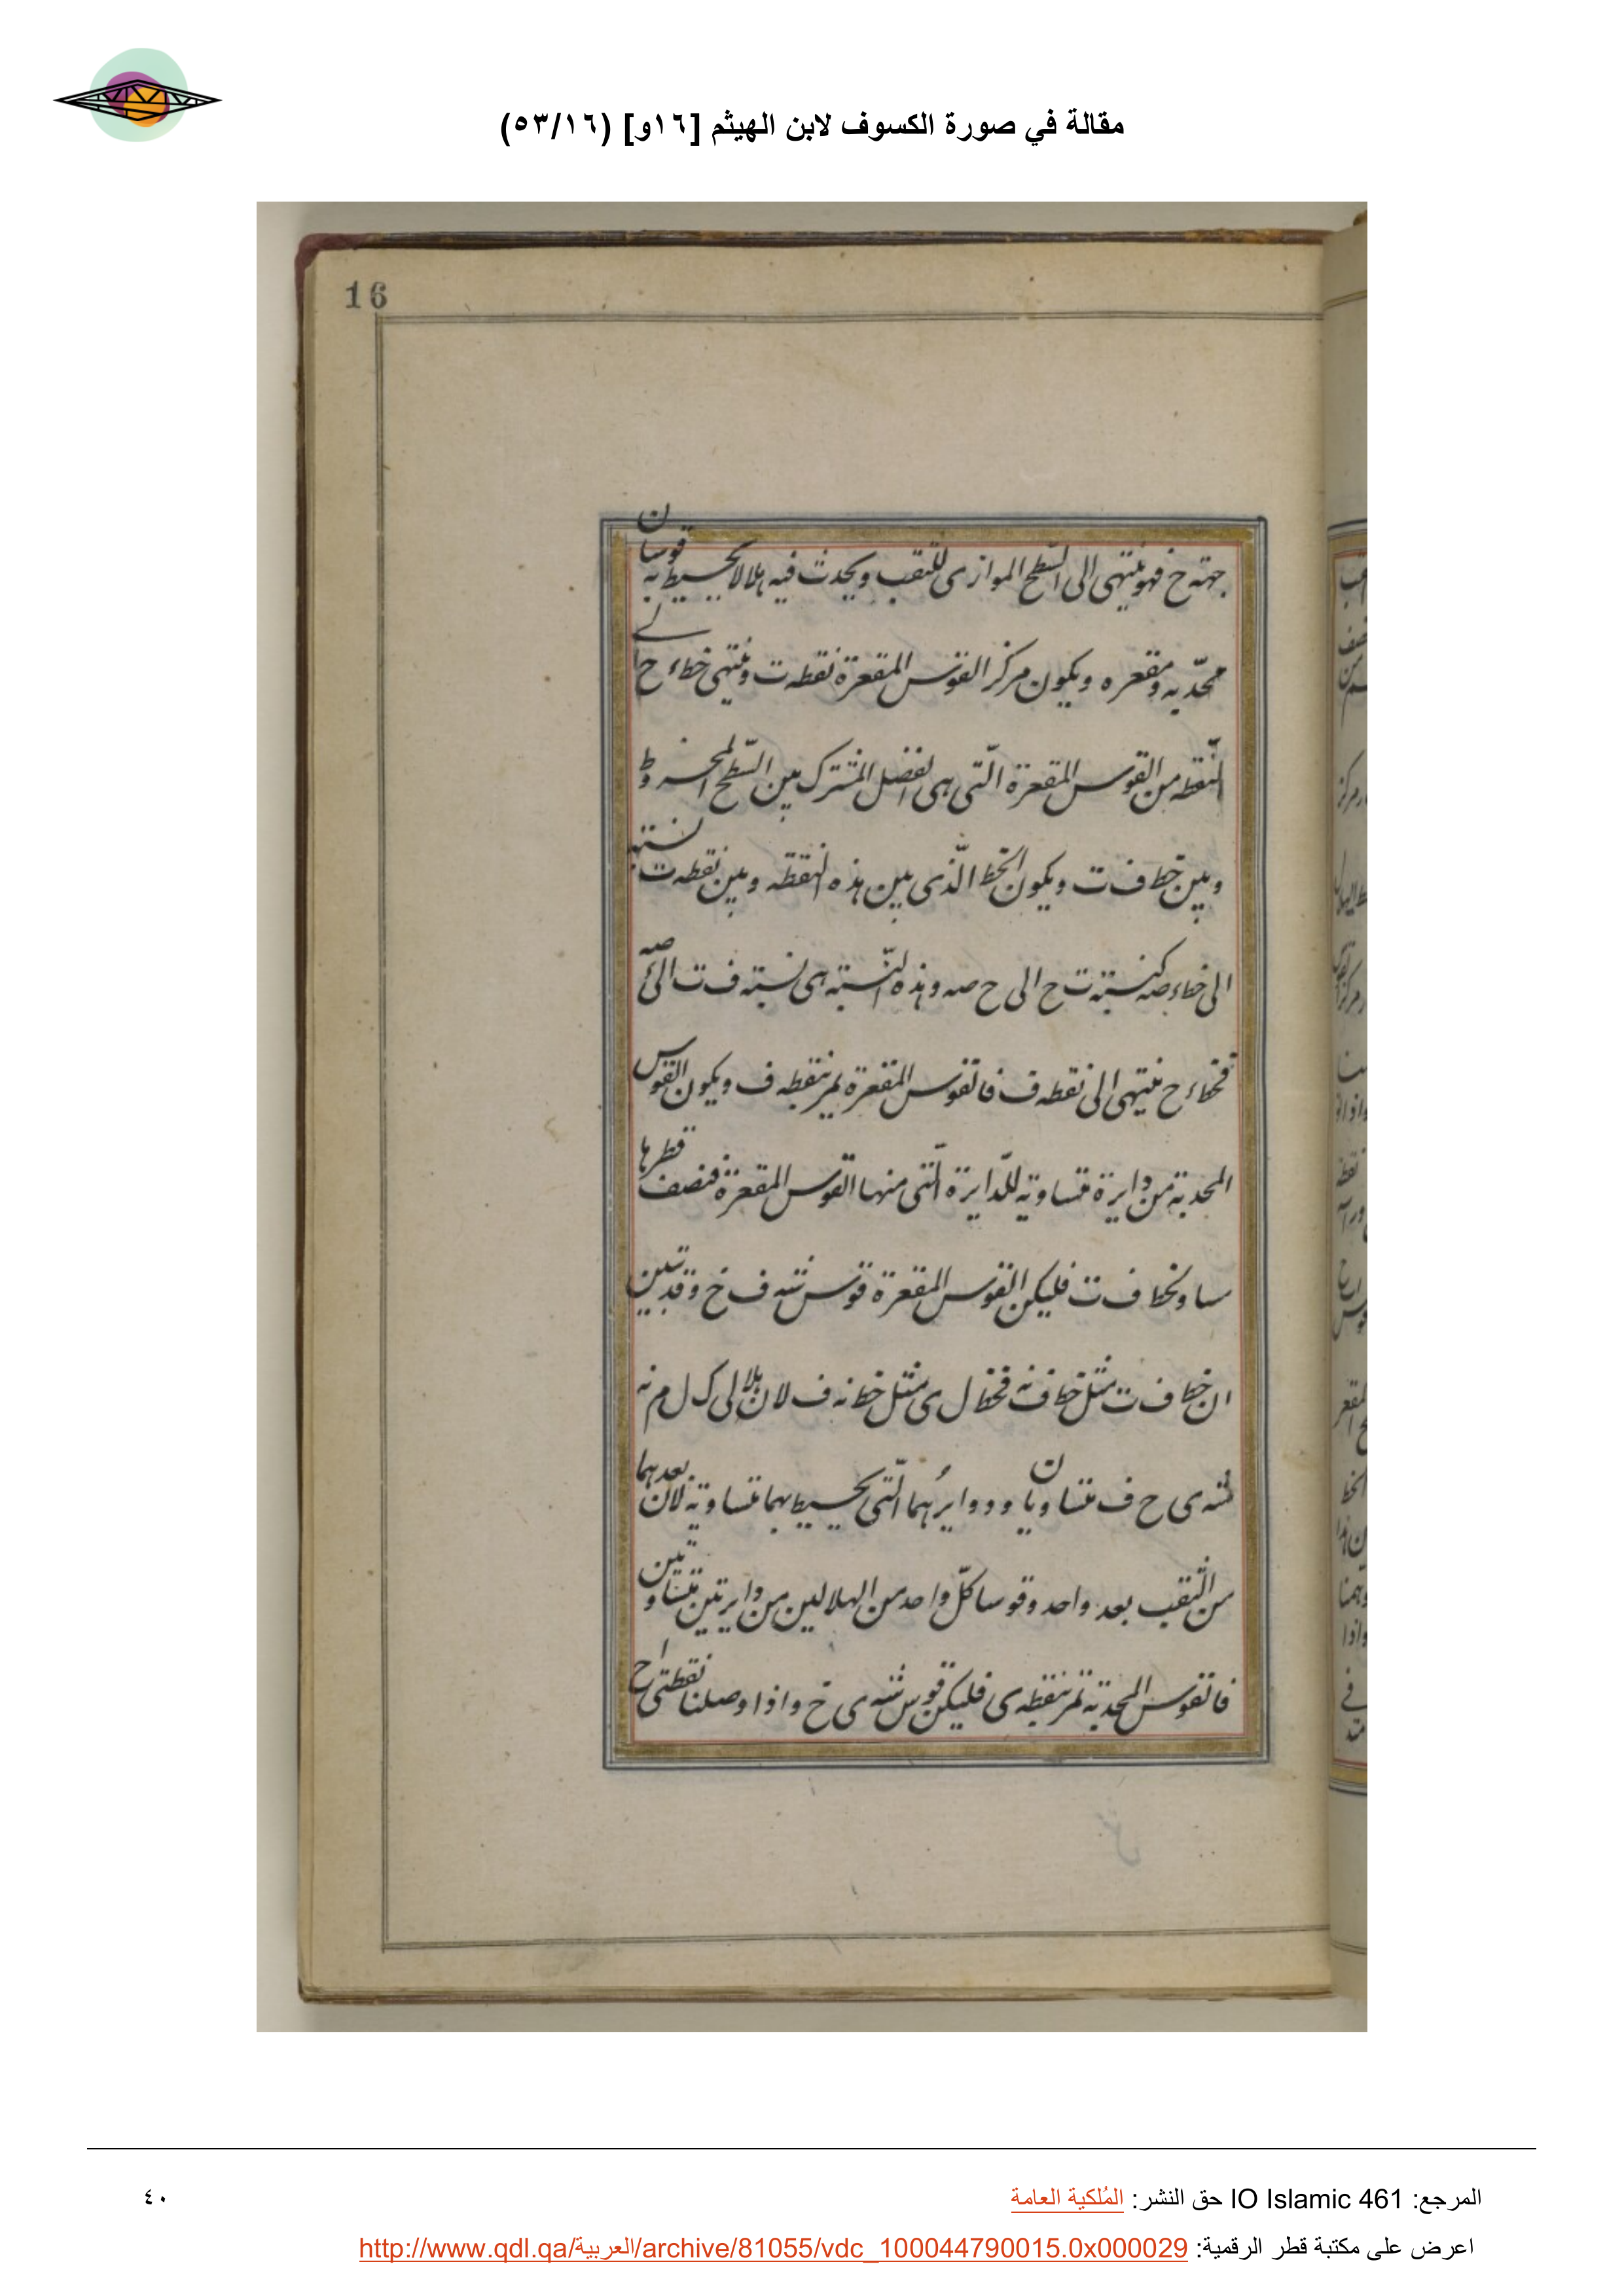 مقالة في صورة الكسوف لابن الهيثم [١٦و] (٥٣/١٦)
16
جهة خ فهو ينتهى الى السّطح الموازى للثقب ويحدث فيه هلالا يحيط به قوسان
محدّبه ومقعره ويكون مركز القوس المقعرة نقطه ت وينتهى خط ء ح الى
النّقطه من القوس المقعرة الّتى هى الفضل المشترك بين السّطح المخروط
وبين خط ف ت ويكون الخط الّذى بين هذه النقطه وبين نقطه ت نسبته
الى خط ء صه كنسبته ت ح الى ح صه وهذه النّسبته هى نسبته ف ت الى ء صه
فخط ء ح ينتهى الى نقطه ف فالقوس المقعرة يمر بنقطه ف ويكون القوس
المحدبة من دايرة متساويه للدّايرة الّتى منها القوس المقعرة فنصف قطرها
مساو لخط ف ت فليكن القوس المقعرة قوس شه ف خ وقد تبين
ان خط ف ت مثل خط ف نه فخط ل ى مثل خط نه ف لان هلالى ك ل م نه
شه ى ح ف متساويان ودوايرهما الّتى يحيط بهما متساويه لان بعدهما
من الثّقب بعد واحد وقوسا كلّ واحد من الهلالين من دايرتين متساويتين
فالقوس المحدبة تمر بنقطه ى فليكن قوس شه ى خ واذا وصلنا نقطتى ا ح
المرجع: IO Islamic 461 حق النشر: المُلكية العامة
٤٠
اعرض على مكتبة قطر الرقمية: http://www.qdl.qa/العربية/archive/81055/vdc_100044790015.0x000029